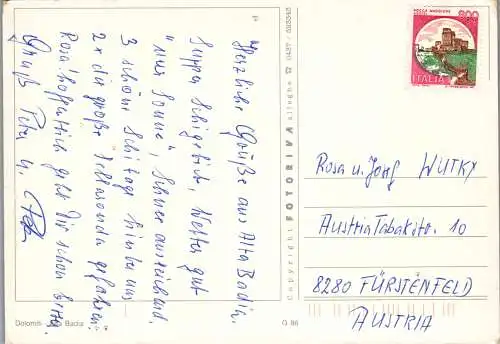 Herzliche Grüße aus Alta Badia.
Super Schigebiet, Wetter gut
"nur Sonne", Schnee ausreichend.
3 schöne Schitage hinter uns
2x die große Sellaronda gefahren.
Rosa! hoffentlich geht Dir schon besser.
Gruß Peter u.
Dolomiti Badia
G 86
Copyright FOTORIVA alleghe ☎ 0437 / 523345
ROCCA MAGGIORE
800
ITALIA
Rosa u. Jörg WUTKY
Austria Tabakstr. 10
8280 FÜRSTENFELD
AUSTRIA